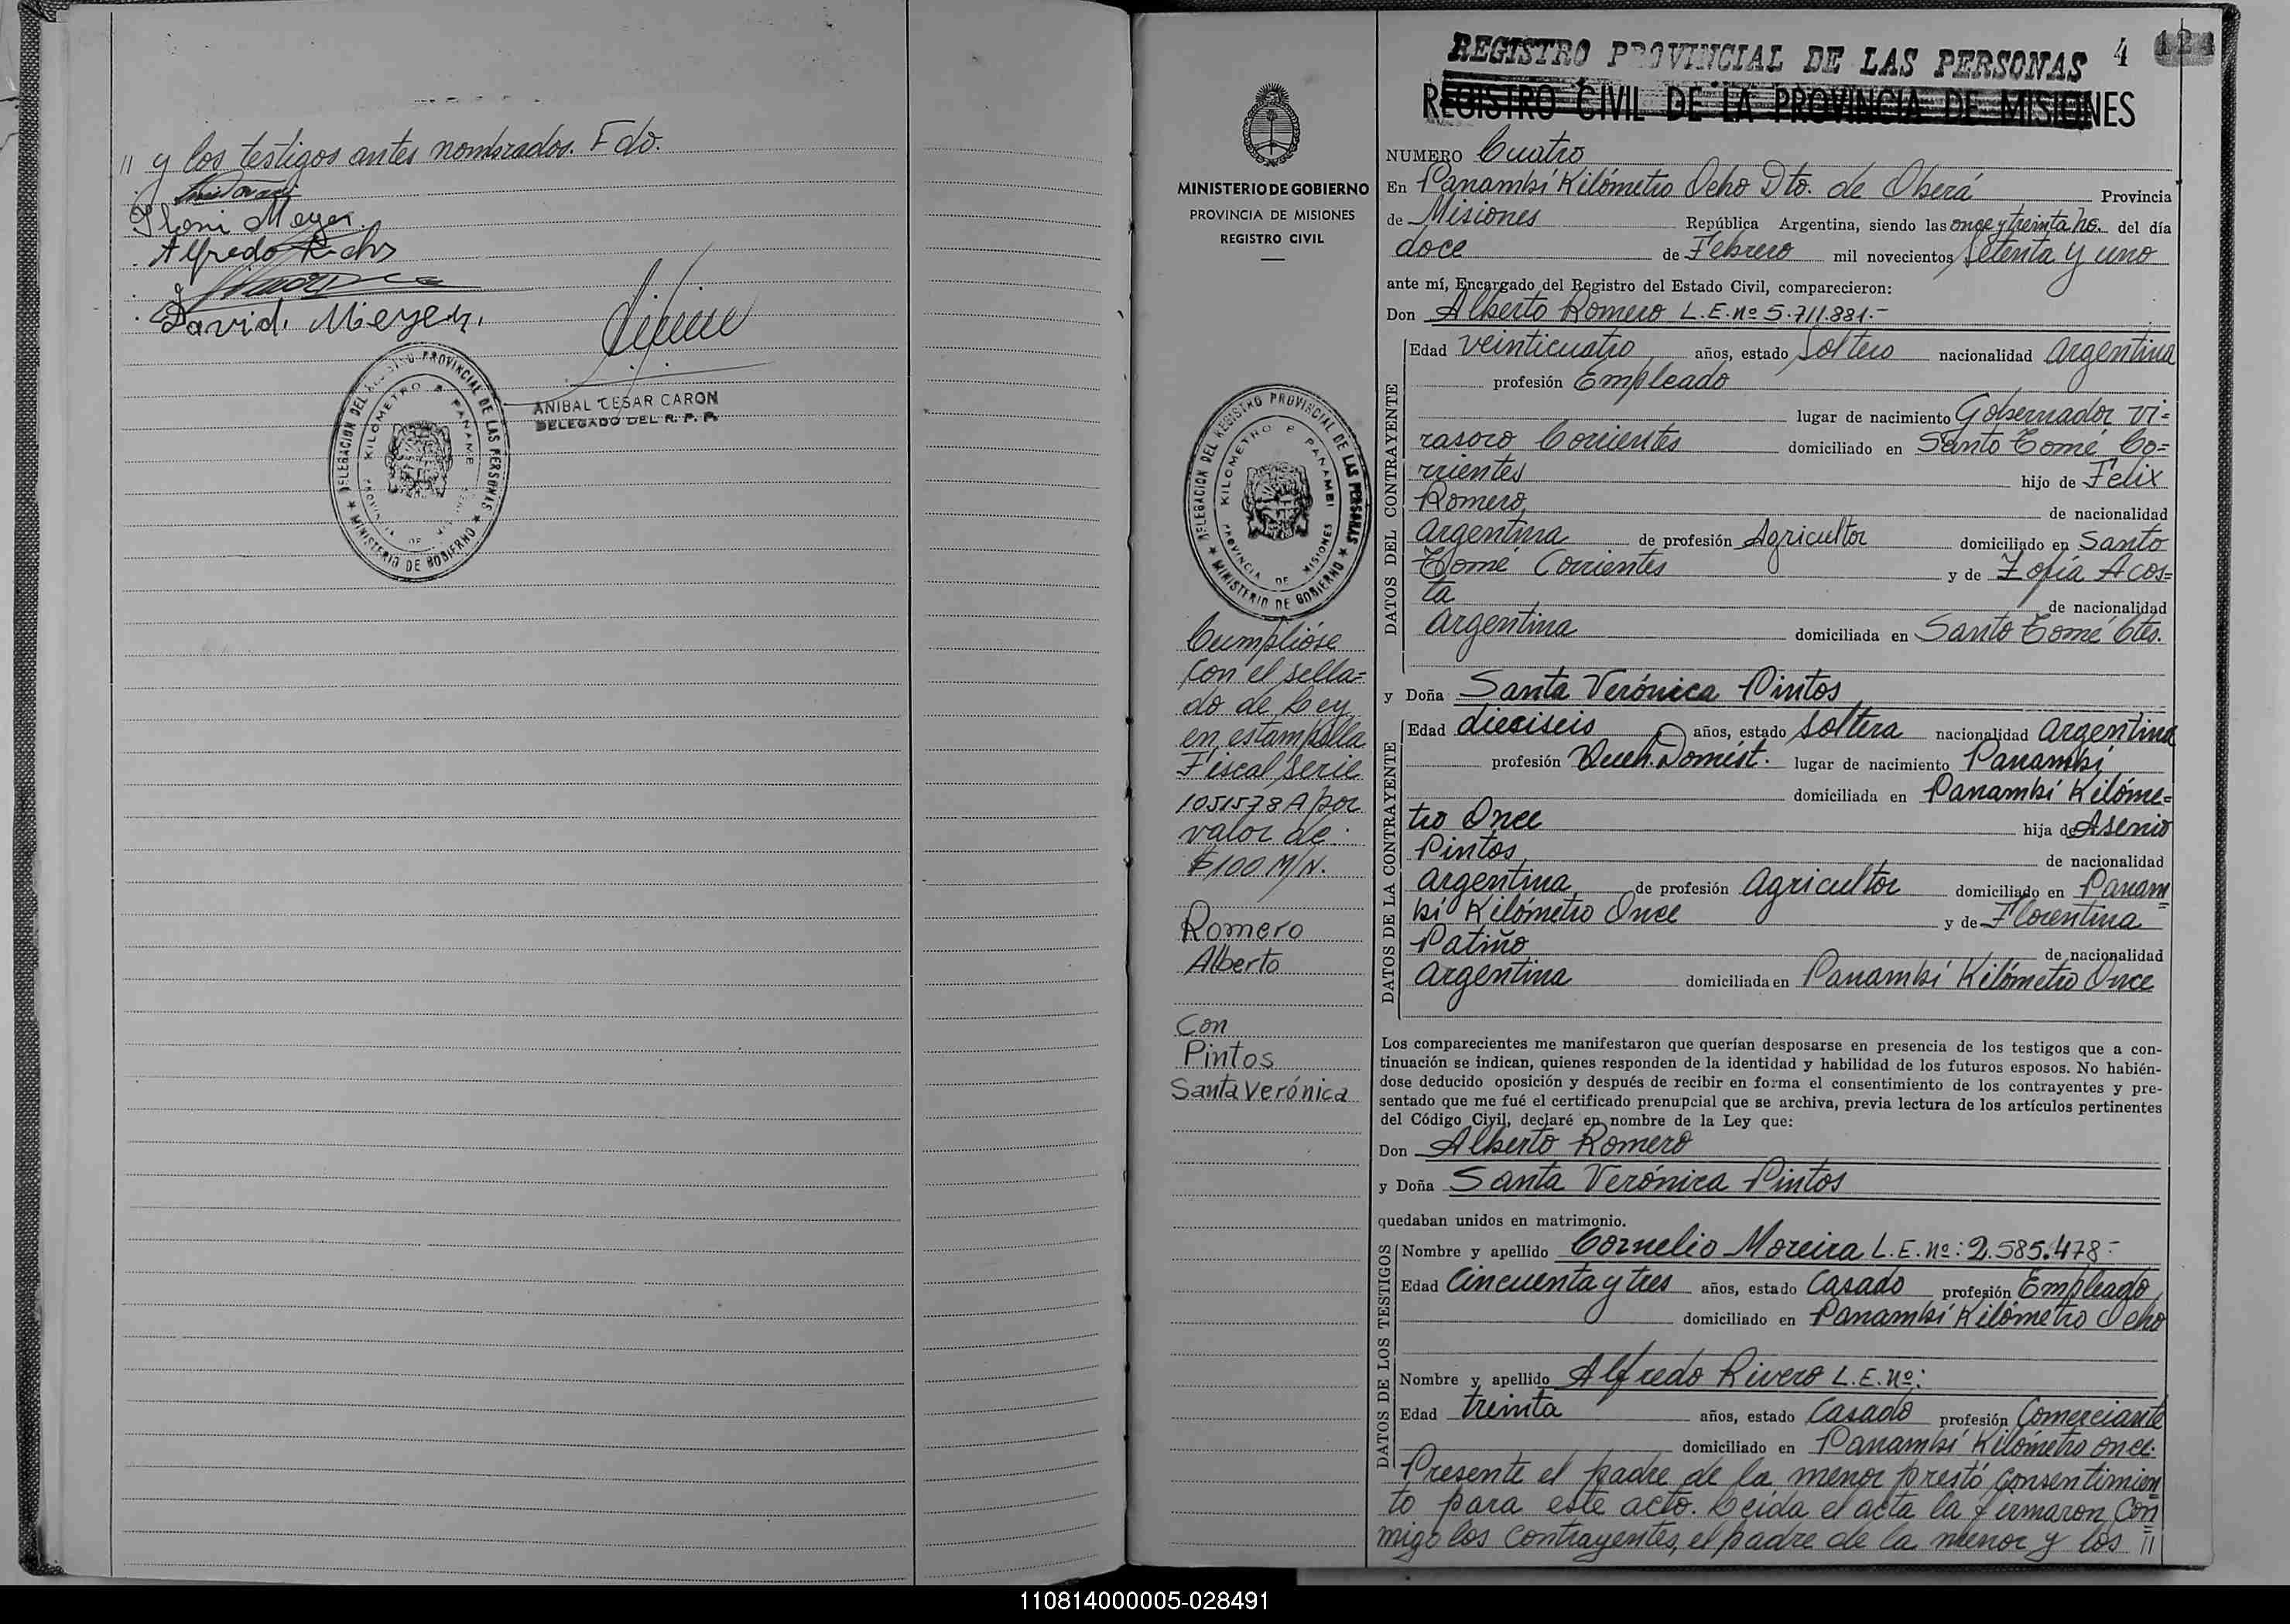 // y los testigos antes nombrados. Fdo.
Meyer
Alfredo
David Meyer
ANIBAL CESAR CARON
DELEGADO DEL R. P. P.
DELEGACION DEL REGISTRO PROVINCIAL DE LAS PERSONAS
KILOMETRO 8 PANAMBI
PROVINCIA DE MISIONES
★ MINISTERIO DE GOBIERNO ★
MINISTERIO DE GOBIERNO
PROVINCIA DE MISIONES
REGISTRO CIVIL
DELEGACION DEL REGISTRO PROVINCIAL DE LAS PERSONAS
KILOMETRO 8 PANAMBI
PROVINCIA DE MISIONES
★ MINISTERIO DE GOBIERNO ★
Cumplióse
con el sella=
do de Ley
en estampilla
Fiscal serie
1051578 A por
valor de:
$100 M/N.
Romero
Alberto
Con
Pintos
Santa Verónica
REGISTRO PROVINCIAL DE LAS PERSONAS 4
REGISTRO CIVIL DE LA PROVINCIA DE MISIONES
NUMERO Cuatro
En Panambí Kilómetro Ocho Dto. de Oberá Provincia
de Misiones República Argentina, siendo las once y treinta hs. del día
doce de Febrero mil novecientos Setenta y uno
ante mí, Encargado del Registro del Estado Civil, comparecieron:
Don Alberto Romero L.E. nº 5.711.881.-
DATOS DEL CONTRAYENTE
Edad veinticuatro años, estado Soltero nacionalidad argentina
profesión Empleado
lugar de nacimiento Gobernador Vi=
rasoro Corrientes domiciliado en Santo Tomé Co=
rrientes hijo de Felix
Romero de nacionalidad
argentina de profesión Agricultor domiciliado en Santo
Tomé Corrientes y de Zofía Acos=
ta de nacionalidad
argentina domiciliada en Santo Tomé Ctes.
y Doña Santa Verónica Pintos
DATOS DE LA CONTRAYENTE
Edad dieciseis años, estado soltera nacionalidad argentina
profesión Queh. Domést. lugar de nacimiento Panambí
domiciliada en Panambí Kilóme=
tro Once hija de Asenio
Pintos de nacionalidad
argentina de profesión Agricultor domiciliado en Panam=
bí Kilómetro Once y de Florentina
Patiño de nacionalidad
argentina domiciliada en Panambí Kilómetro Once
Los comparecientes me manifestaron que querían desposarse en presencia de los testigos que a con-
tinuación se indican, quienes responden de la identidad y habilidad de los futuros esposos. No habién-
dose deducido oposición y después de recibir en forma el consentimiento de los contrayentes y pre-
sentado que me fué el certificado prenupcial que se archiva, previa lectura de los artículos pertinentes
del Código Civil, declaré en nombre de la Ley que:
Don Alberto Romero
y Doña Santa Verónica Pintos
quedaban unidos en matrimonio.
DATOS DE LOS TESTIGOS
Nombre y apellido Cornelio Moreira L.E. nº: 2.585.478-
Edad Cincuenta y tres años, estado Casado profesión Empleado
domiciliado en Panambí Kilómetro Ocho
Nombre y apellido Alfredo Rivero L.E. nº:
Edad treinta años, estado Casado profesión Comerciante
domiciliado en Panambí Kilómetro once.
Presente el padre de la menor prestó consentimien=
to para este acto. Leída el acta la firmaron Con=
migo los Contrayentes, el padre de la menor y los //
110814000005-028491